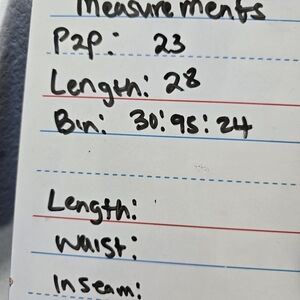 Measurements
P2P: 23
Length: 28
Bin: 30:95:24
Length:
Waist:
Inseam: